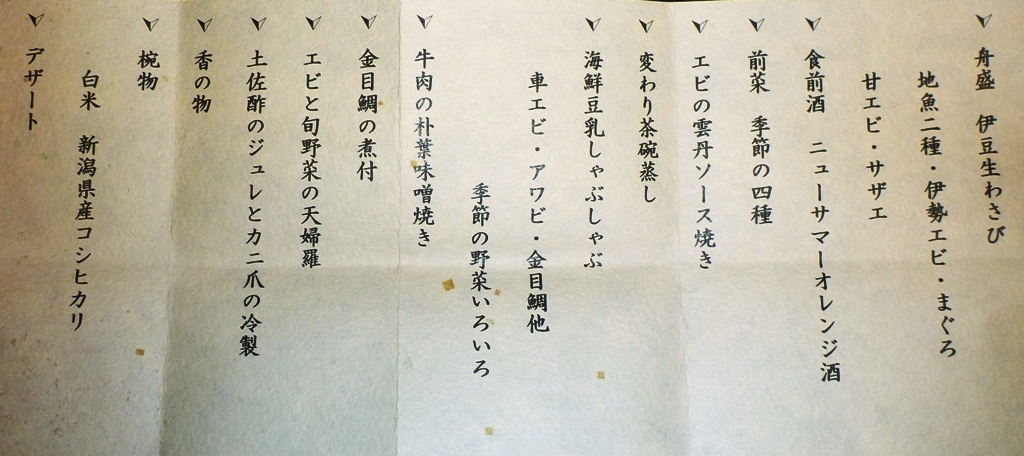 舟盛　伊豆生わさび
地魚二種・伊勢エビ・まぐろ
甘エビ・サザエ
食前酒　ニューサマーオレンジ酒
前菜　季節の四種
エビの雲丹ソース焼き
変わり茶碗蒸し
海鮮豆乳しゃぶしゃぶ
車エビ・アワビ・金目鯛他
季節の野菜いろいろ
牛肉の朴葉味噌焼き
金目鯛の煮付
エビと旬野菜の天婦羅
土佐酢のジュレとカニ爪の冷製
香の物
椀物
白米　新潟県産コシヒカリ
デザート